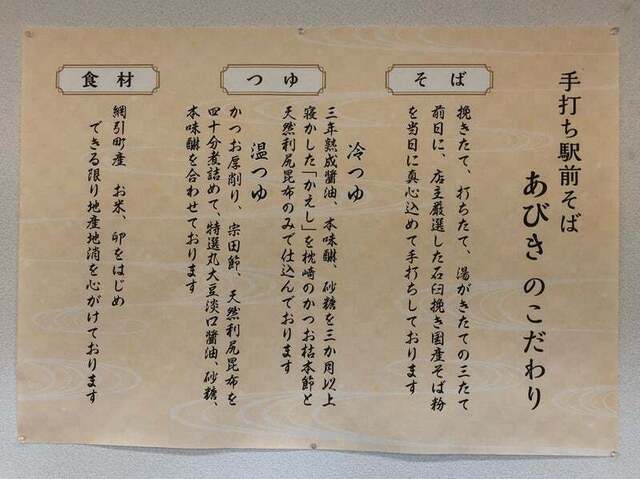 手打ち駅前そば
あびき のこだわり
そば
挽きたて、打ちたて、湯がきたての三たて
前日に、店主厳選した石臼挽き国産そば粉
を当日に真心込めて手打ちしております
つゆ
冷つゆ
三年熟成醤油、本味醂、砂糖を三か月以上
寝かした「かえし」を枕崎のかつお枯本節と
天然利尻昆布のみで仕込んでおります
温つゆ
かつお厚削り、宗田節、天然利尻昆布を
四十分煮詰めて、特選丸大豆淡口醤油、砂糖、
本味醂を合わせております
食材
網引町産 お米、卵をはじめ
できる限り地産地消を心がけております